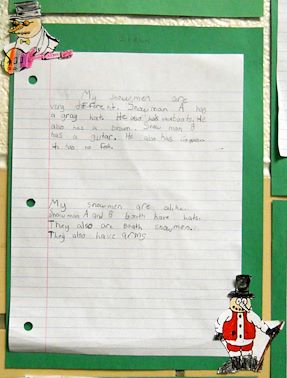 My snowmen are
very different. Snowman A has
a gray hat. He also has
also has a broom. Snow man B
has a guitar. He also has
no feet.
My snowmen are alike.
Snowman A and B both have hats.
They also are both snowmen.
They also have arms